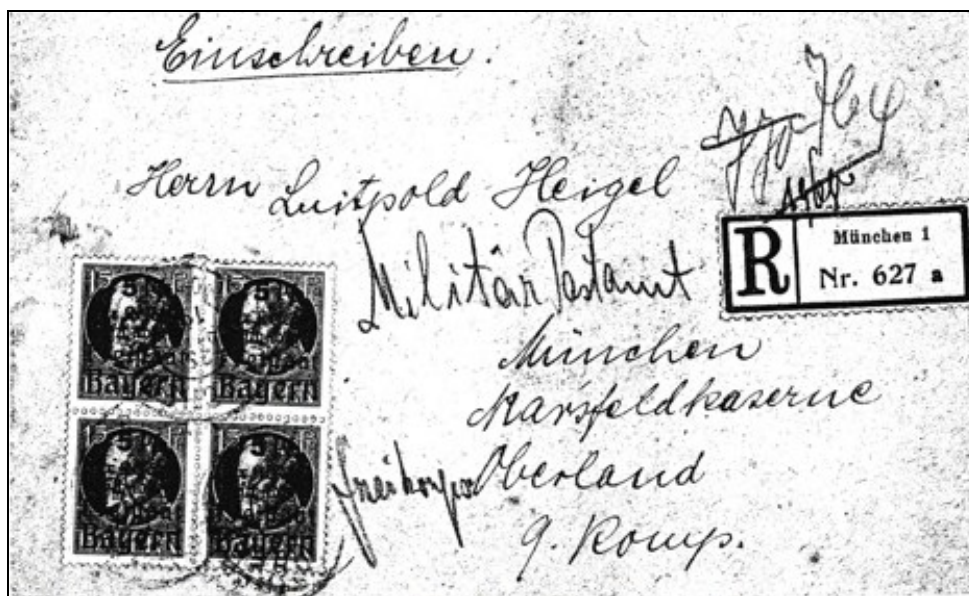 Einschreiben.
Herrn Luitpold Heigel
Militär Postamt
München
Marsfeldkaserne
Freikorps Oberland
9. Komp.
R
München 1
Nr. 627 a
15 15
Bayern
15 15
Bayern
15 15
Bayern
15 15
Bayern